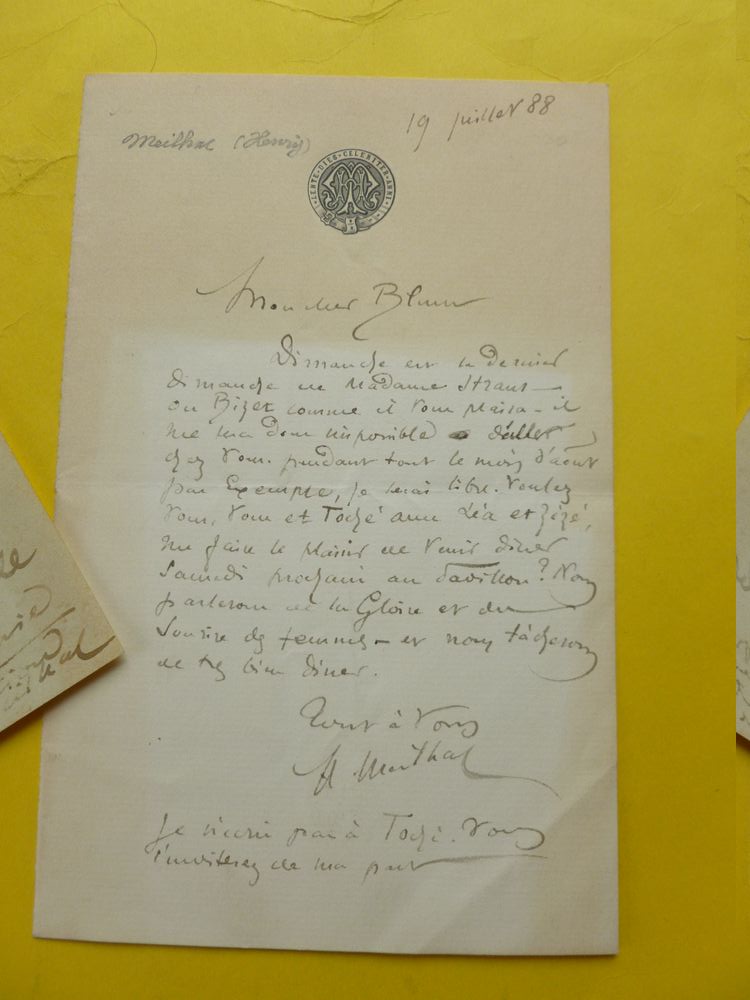 19 juillet 88
Meilhac (Henry)
LENTE DIES CELERITER ANNI
Mon cher Blum
Dimanche est le dernier
dimanche de Madame Straus
ou Bizet comme il vous plaira - il
me sera donc impossible d'aller
chez vous. pendant tout le mois d'aout
par exemple, je serai libre. Voulez
vous, vous et Toché avec Léa et Zézé,
me faire le plaisir de venir diner
Samedi prochain au Pavillon? Nous
parlerons de la Gloire et du
Sourire des femmes - et nous tâcherons
de très bien diner.
Tout à vous
H. Meilhac
Je n'écris pas à Toché. Vous
l'inviterez de ma part